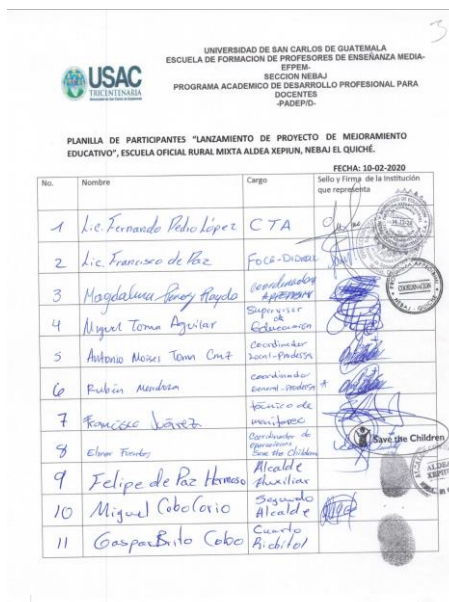 3
UNIVERSIDAD DE SAN CARLOS DE GUATEMALA
ESCUELA DE FORMACION DE PROFESORES DE ENSEÑANZA MEDIA-
EFPEM-
SECCION NEBAJ
PROGRAMA ACADEMICO DE DESARROLLO PROFESIONAL PARA
DOCENTES
-PADEP/D-
USAC
TRICENTENARIA
PLANILLA DE PARTICIPANTES “LANZAMIENTO DE PROYECTO DE MEJORAMIENTO
EDUCATIVO”, ESCUELA OFICIAL RURAL MIXTA ALDEA XEPIUN, NEBAJ EL QUICHÉ.
FECHA: 10-02-2020
No. Nombre Cargo Sello y Firma de la Institución
que representa
1 Lic. Fernando Pedro López CTA
2 Lic. Francisco de Paz
3 Magdalena Coordinadora
COORDINACION
4 Miguel Toma Aguilar Supervisor
de
Educación
5 Antonio Moises Toma Cruz Coordinador
Local-Prodessa
6 Rubén Mendoza Coordinador
General-Prodessa
7 Francisco Juárez técnico de
monitoreo
8 Elmer Fuentes Coordinador de
operaciones
Save the Children
Save the Children
9 Felipe de Paz Hermoso Alcalde
Auxiliar
10 Miguel Cobo Corio Segundo
Alcalde
11 Gaspar Brito Cobo Cuarto